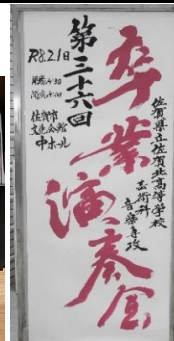 佐賀県立佐賀北高等学校
芸術科
音楽専攻
卒業演奏会
第三十六回
R8.2.1日
開場
開演
佐賀市
文化会館
中ホール